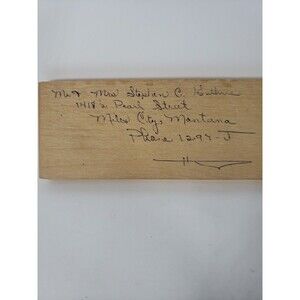 Mr & Mrs Stephen C.
1418 ½ Pearl Street
Miles City, Montana
Phone 1297-J